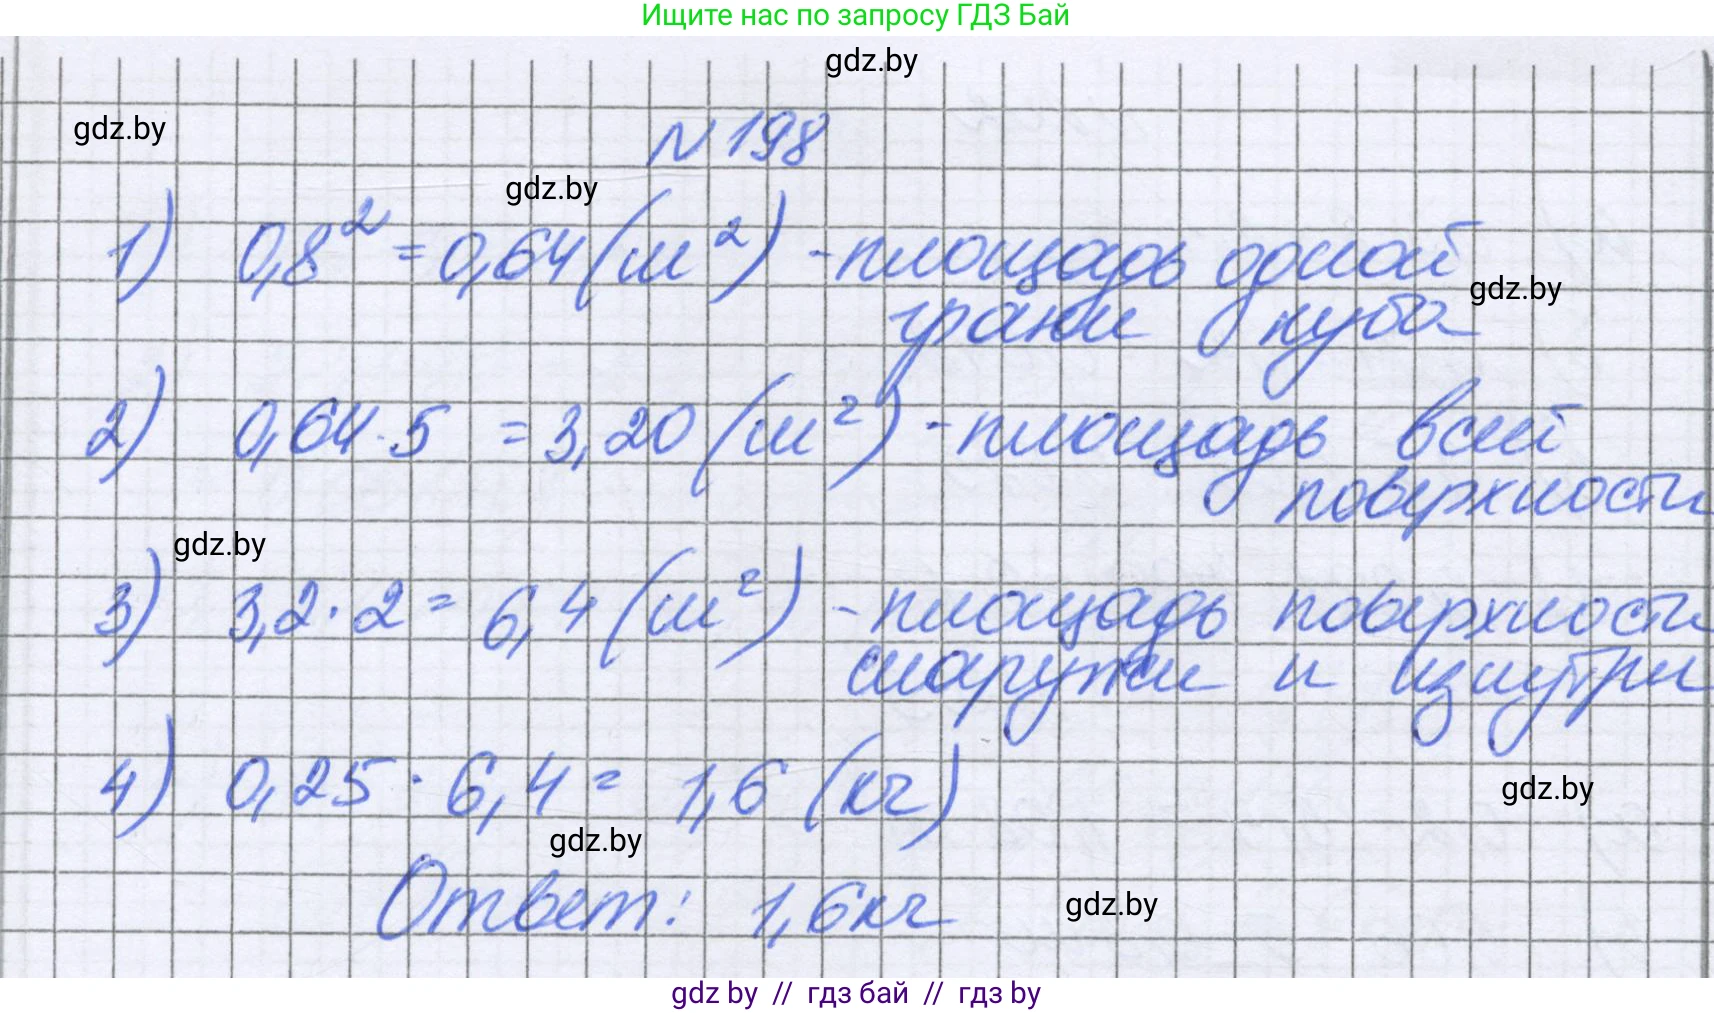 Ищите нас по запросу ГДЗ Бай
gdz.by
gdz.by
N198
gdz.by
1) 0,8² = 0,64 (м²) - площадь одной
gdz.by
грани куба
2) 0,64 · 5 = 3,20 (м²) - площадь всей
поверхности
gdz.by
3) 3,2 · 2 = 6,4 (м²) - площадь поверхности
снаружи и изнутри
4) 0,25 · 6,4 = 1,6 (кг)
gdz.by
gdz.by
Ответ: 1,6 кг
gdz.by
gdz by // гдз бай // гдз by